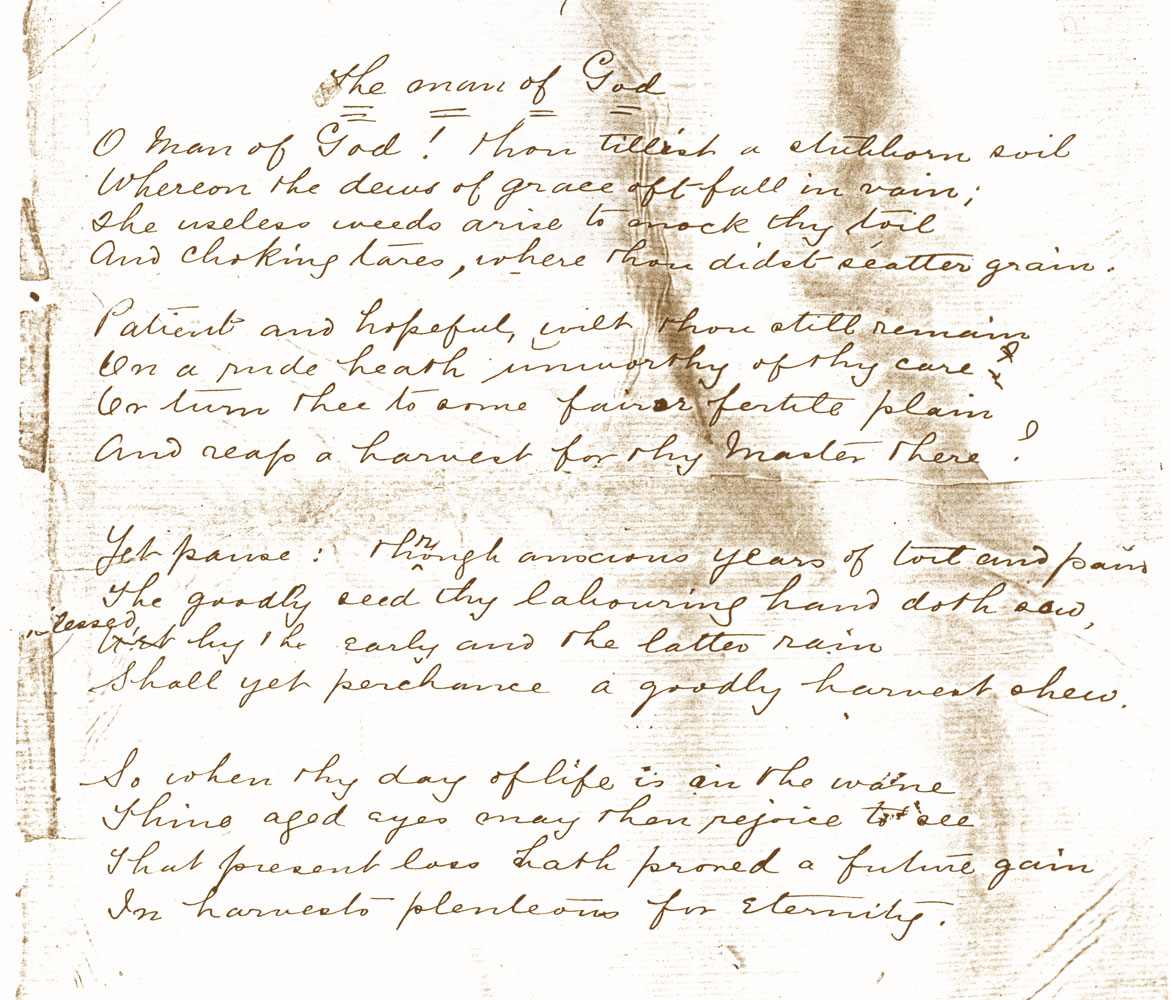 The man of God
O Man of God! thou till'st a stubborn soil
Whereon the dews of grace oft fall in vain;
The useless weeds arise to mock thy toil
And choking tares, where thou didst scatter grain.
Patient and hopeful, wilt thou still remain
On a rude heath unworthy of thy care?
Or turn thee to some fairer fertile plain
And reap a harvest for thy Master there?
Yet pause: through anxious years of toil and pain
The goodly seed thy labouring hand doth sow,
Blessed by the early and the latter rain
Shall yet perchance a goodly harvest shew.
So when thy day of life is in the wane
Thine aged eyes may then rejoice to see
That present loss hath proved a future gain
In harvests plenteous for Eternity.